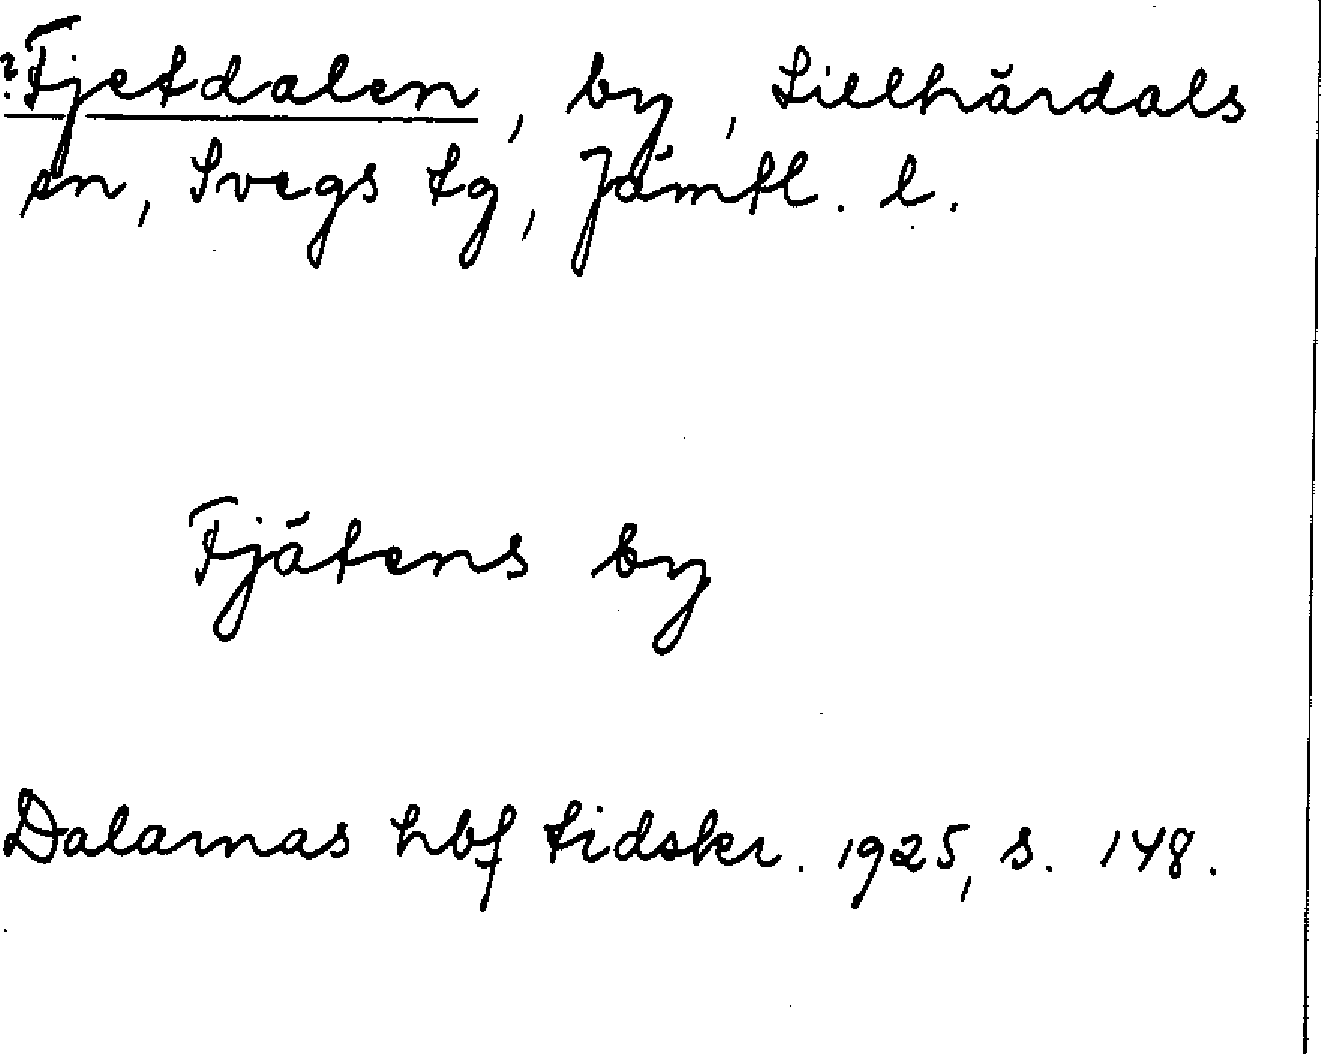 ?Fjetdalen, by, Lillhärdals
sn, Svegs tg, Jämtl. l.
Fjätens by
Dalarnas hbf tidskr. 1925, s. 148.